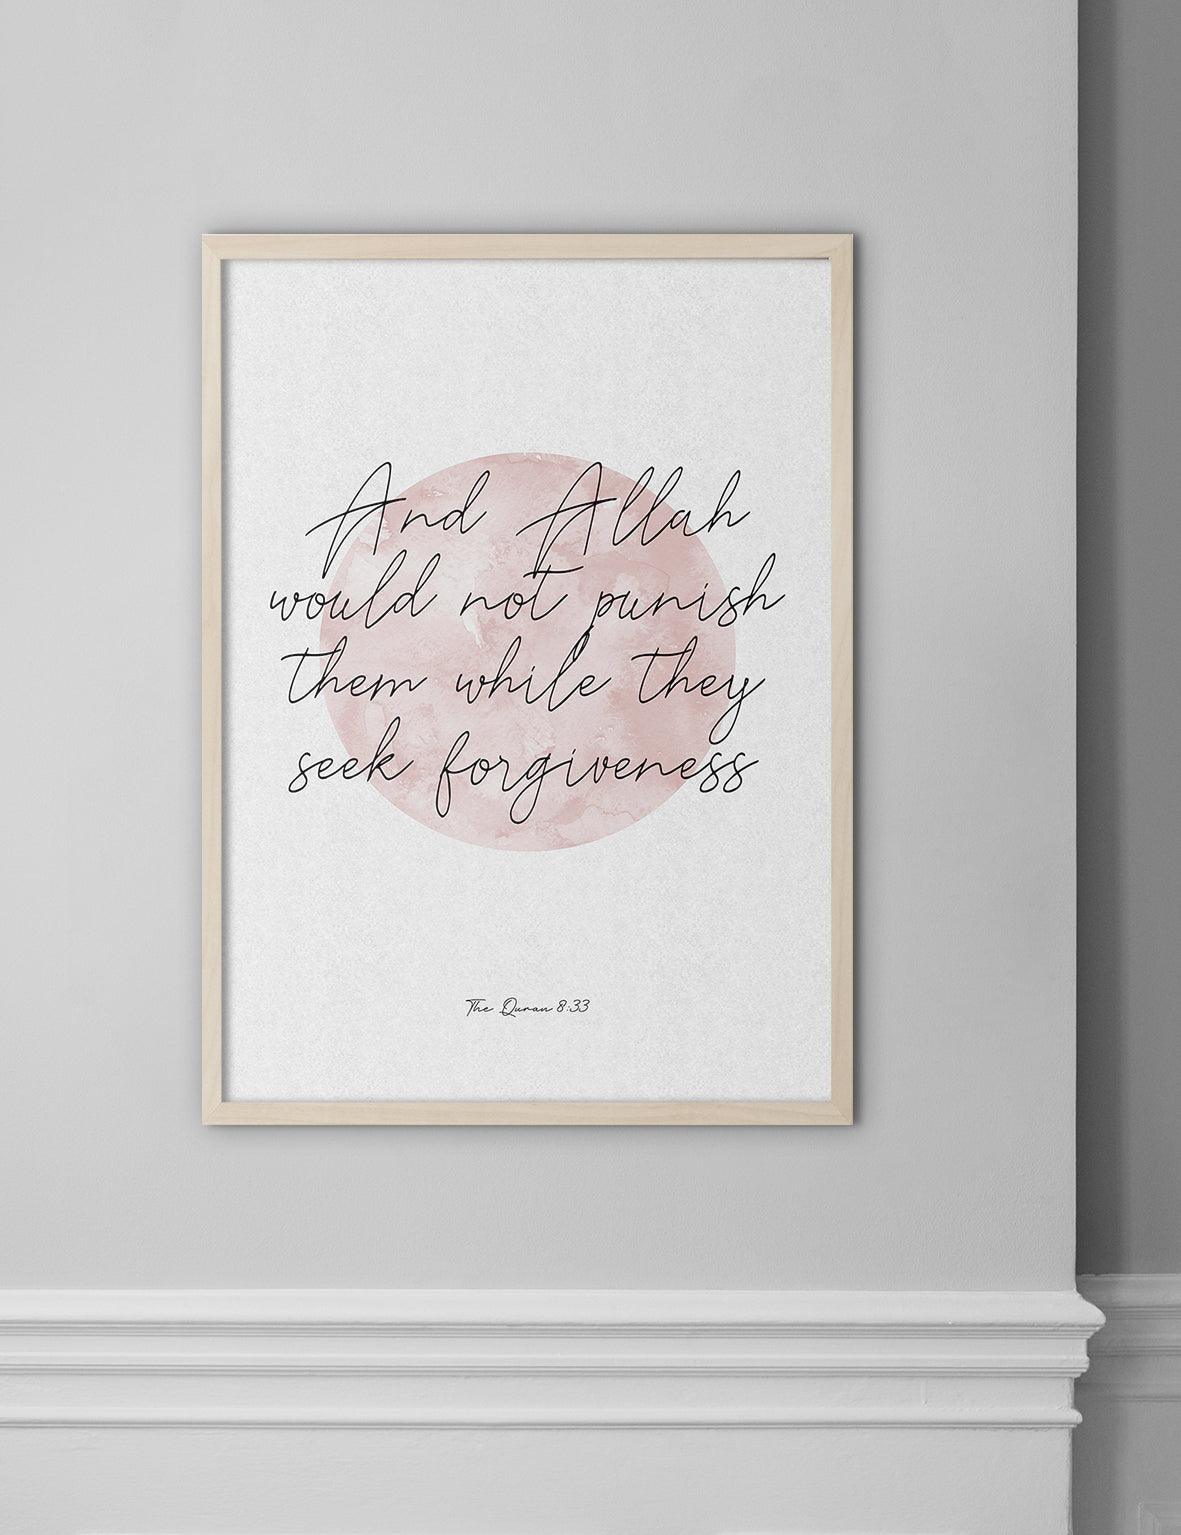 And Allah
would not punish
them while they
seek forgiveness
The Quran 8:33